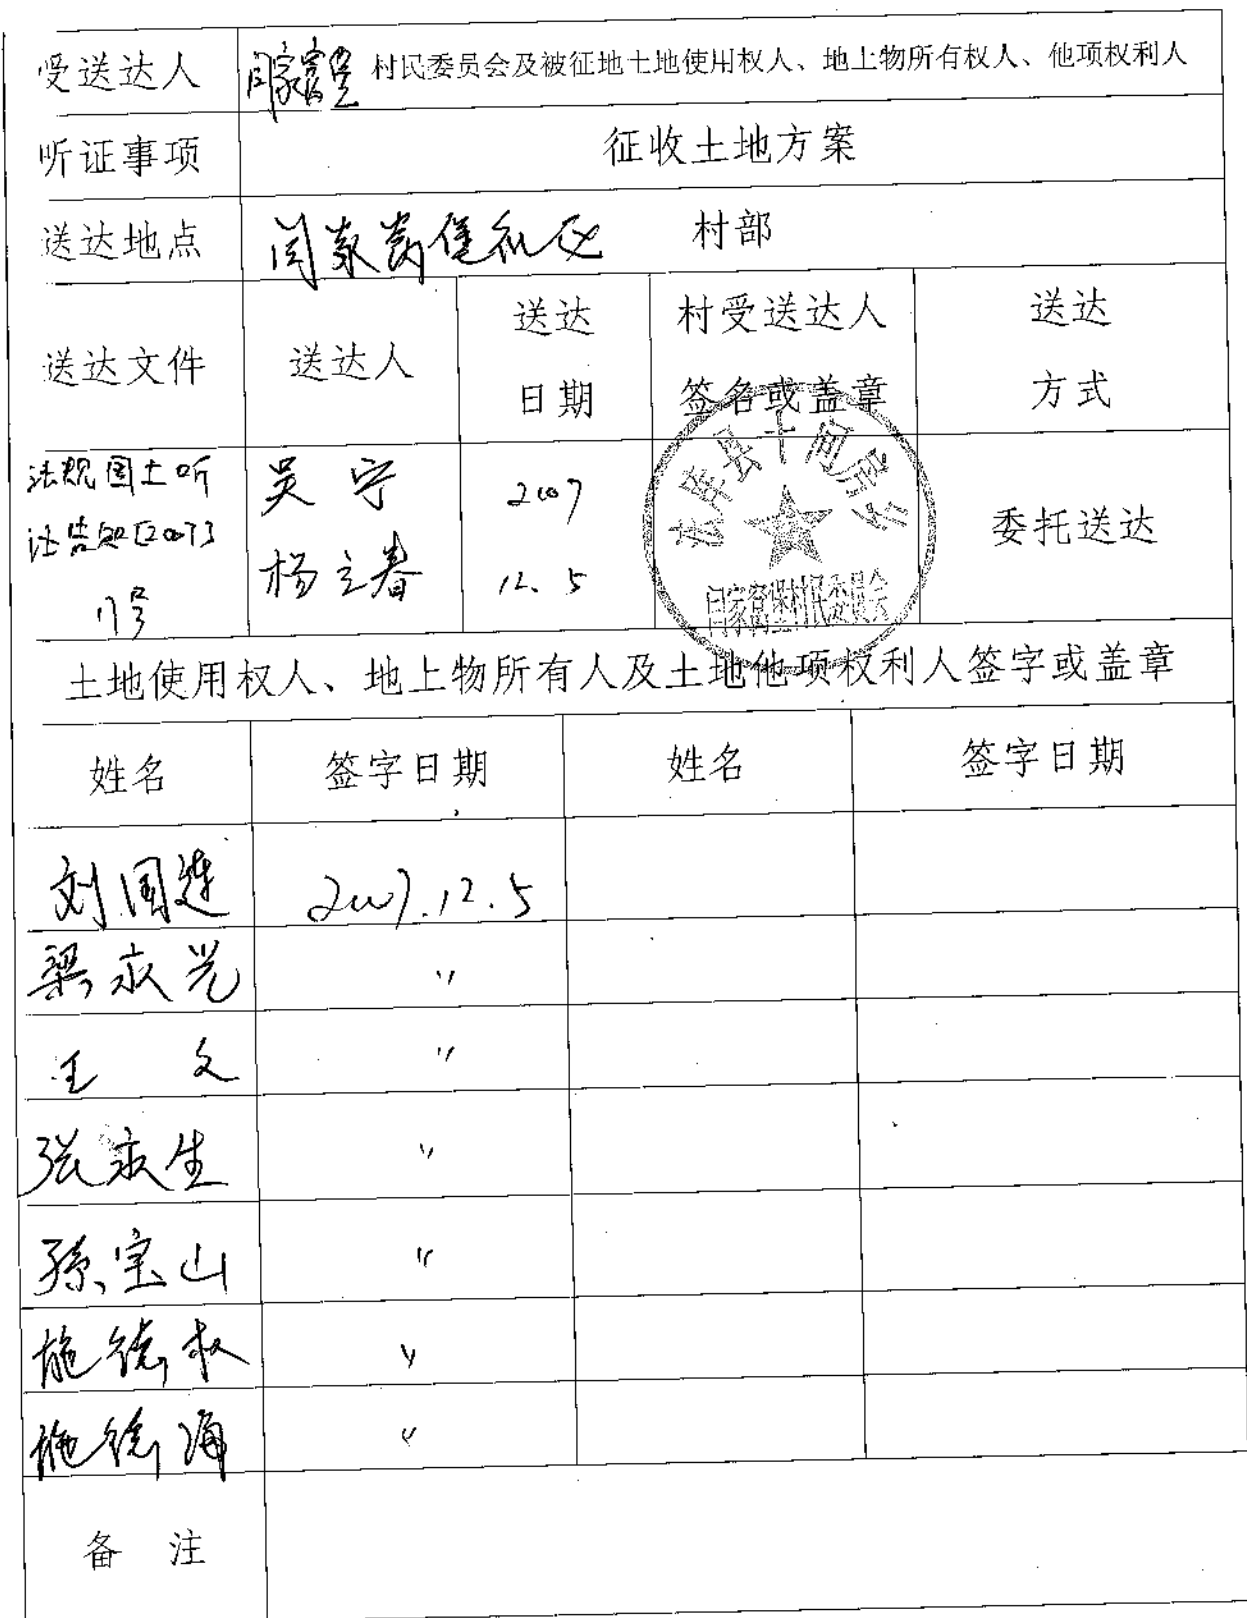 受送达人 闫家窝堡 村民委员会及被征地土地使用权人、地上物所有权人、他项权利人
听证事项 征收土地方案
送达地点 闫家窝堡 村部
送达文件 送达人 送达日期 村受送达人签名或盖章 送达方式
国土听
告知[2007]
号
吴宁
杨立春
2007
12.5
法库县十间房乡
闫家窝堡村民委员会
委托送达
土地使用权人、地上物所有人及土地他项权利人签字或盖章
姓名 签字日期 姓名 签字日期
刘国连 2007.12.5
梁永光 〃
王文 〃
张永生 〃
孙宝山 〃
施德权 〃
施德海 〃
备注